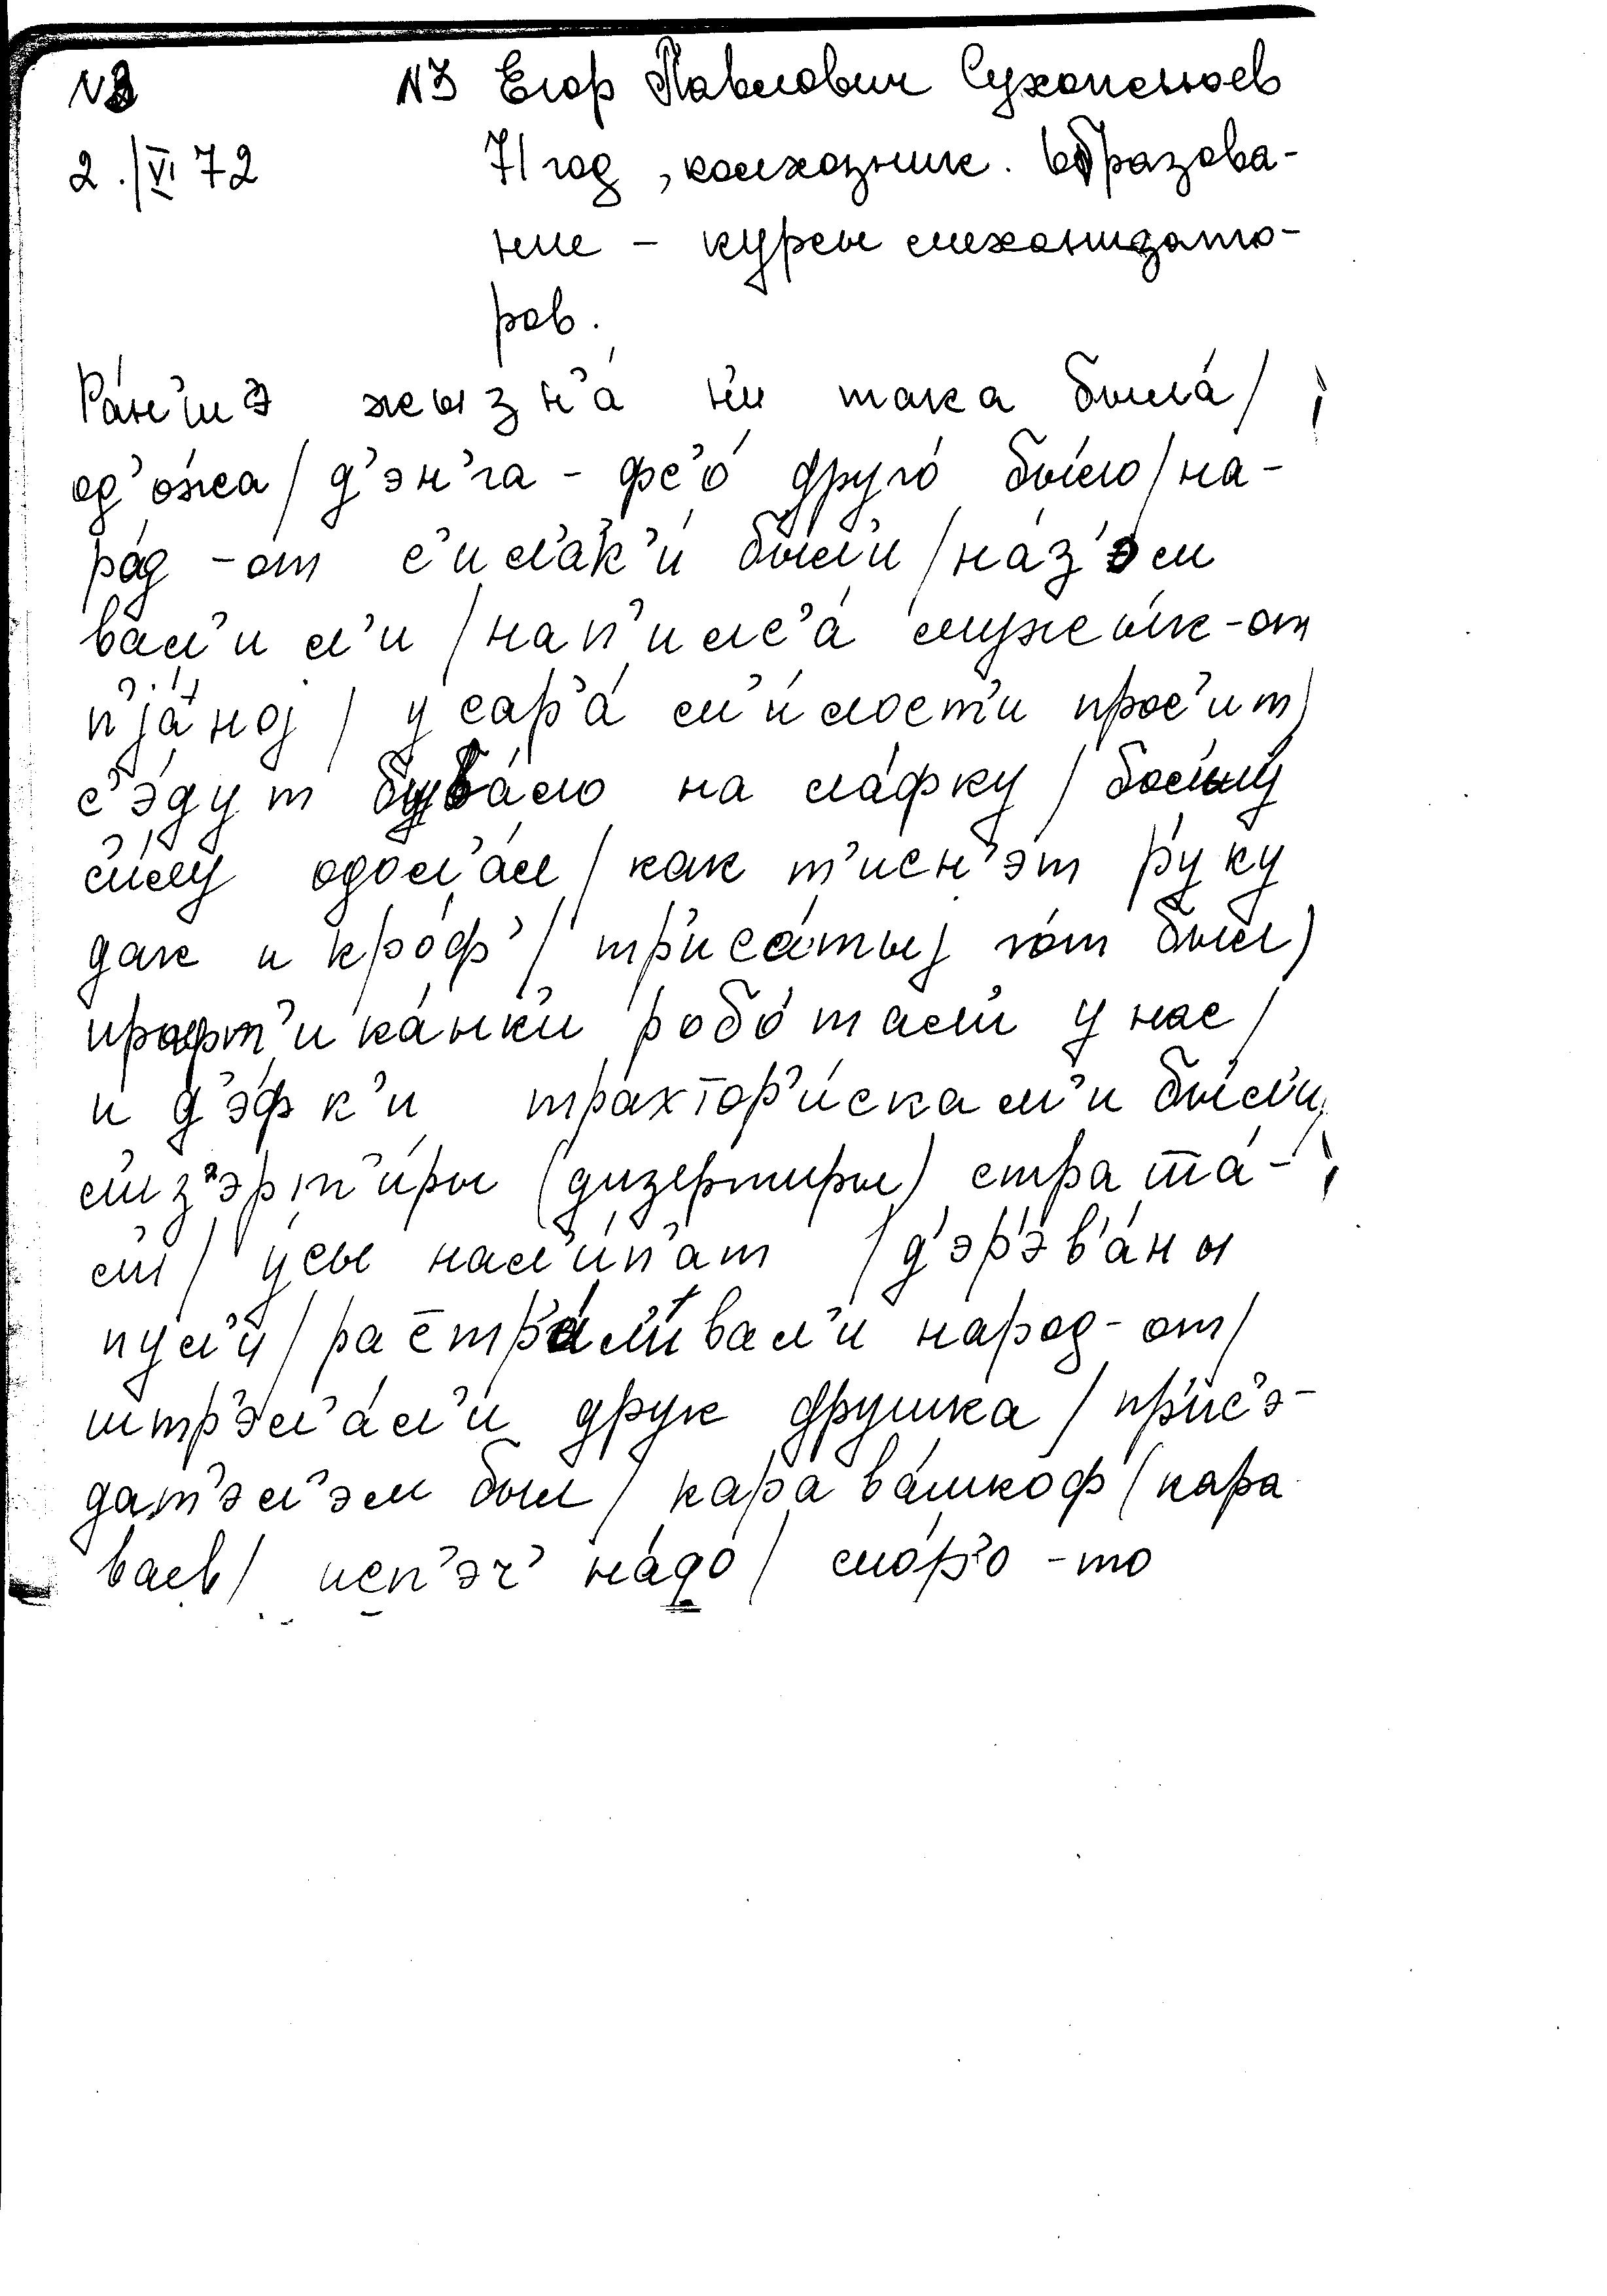 N3 N3 Егор Павлович Сухоплюев
2./VI 72 71 год, колхозник. Образова-
ние - курсы механизато-
ров.
Ра́н'шэ жызн'а́ н'и така была́/
од'о́жа/ д'эн'га - фс'о́ друго́ бы́ло/на-
ро́д -от с'ила́к'и́ были/на́з'эм
вал'и л'и/нап'илс'а́ мужы́к-от
п'jа́ноj/ у цар'а́ м'и́лост'и прос'ит/
с'э́дут быва́ло на ла́фку/
с'и́лу одол'а́л/как т'исн'э́т ру́ку
дак и кроф'/ тр'иса́тыj го́т был/
прафт'ика́нк'и робо́тал'и у нас/
и д'э́фк'и трахтор'и́скам'и бы́л'и/
л'из'эрт'и́ры (дизертиры) страта́-
л'и/ у́сы нал'и́п'ат /д'эр'эв'а́ны
пул'и/расстр'э́л'ивал'и народ-от/
штр'эл'а́л'и друк друшка/пр'ис'э-
дат'эл'эм был/ карава́шкоф (кара
ваев/ исп'эч' на́до/ мо́р'о -то